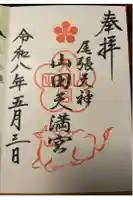 奉拝
尾張天神
山田天満宮
令和八年五月三日